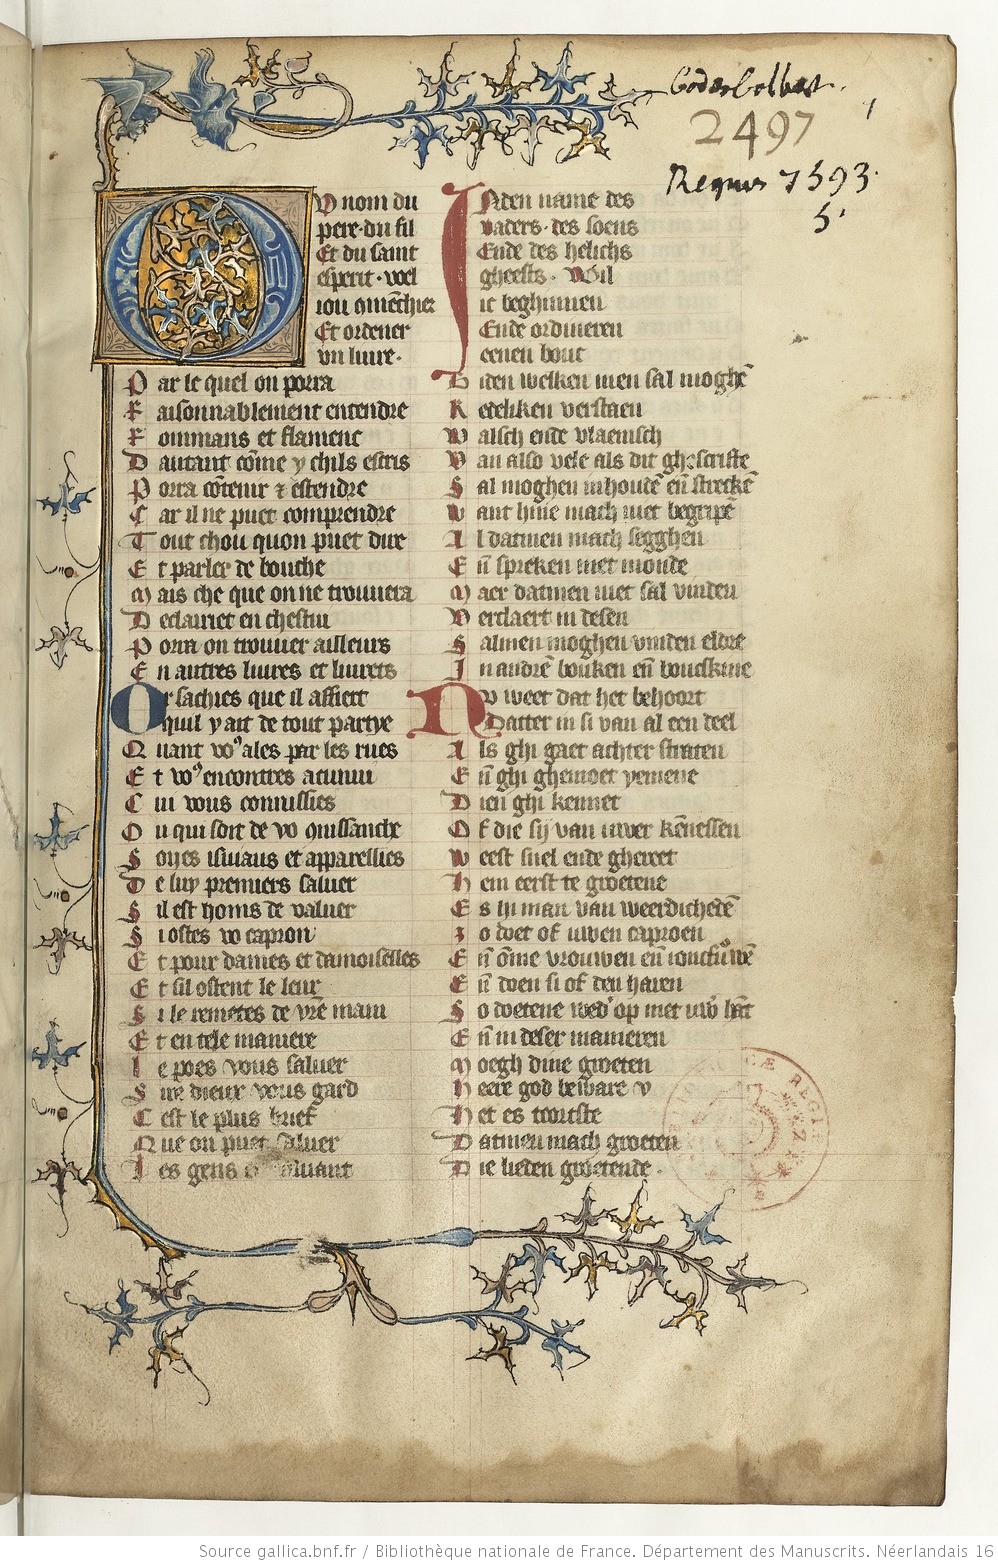 Codex Colbert.
1
2497
Regius 7593.
5.
O nom du
pere · du fil
Et du saint
esperit · voel
iou cōmēchier
Et ordener
vn liure ·
Par le quel on porra
Raisonnablement entendre
Rommans et flamenc
Dautant cōme y chils escris
Porra cōtenir ⁊ estendre
Car il ne puet comprendre
Tout chou quon puet dire
Et parler de bouche
Mais che que on ne trouuera
Declairiet en chestui
Porra on trouuer ailleurs
En autres liures et liurets
Or sachies que il affiert
Quil y ait de tout partye
Quant voꝰ ales par les rues
Et voꝰ encontres aucunu
Cui vous connissies
Ou qui soit de vo cnissanche
Soijes isniaus et apparellies
De luy premiers saluer
Sil est homs de valuer
Si ostes vo capron
Et pour dames et damoiselles
Et sil ostent le leur
Si le remetes de vr̄e main
Et en tele maniere
Le poes vous saluer
Sire dieux vous gard
Cest le plus brief
Que on puet saluer
Les gens suuant
INden name des
vaders · des soens
Ende des helichs
gheests · Wil
ic beghinnen
Ende ordineren
eenen bouc
Biden welken men sal moghē
Redeliken verstaen
Walsch ende vlaemsch
Van also vele als dit ghescrifte
Sal moghen inhoudē en̄ streckē
Want hine mach niet begripē
Al datmen mach segghen
En̄ spreken met monde
Maer datmen niet sal vinden
Verclaert in desen
Salmen moghen vinden eldre
In andrē bouken en̄ bouckine
Nv weet dat het behoort
Datter in si van al een deel
Als ghi gaet achter straten
En̄ ghi ghemoet yemene
Dien ghi kennet
Of die sij van uwer kēnessen
Weest snel ende ghereet
Hem eerst te groetene
Es hi man van weerdichedē
Zo doet of uwen caproen
En̄ ōme vrouwen en̄ ioncfrouwē
En̄ doen si of den haren
So doetene wedʼ op met uwʼ hāt
En̄ in deser manieren
Moegh dine groeten
Heere god beware v
Het es tcortste
Datmen mach groeten
Die lieden groetende ·
Source gallica.bnf.fr / Bibliothèque nationale de France. Département des Manuscrits. Néerlandais 16